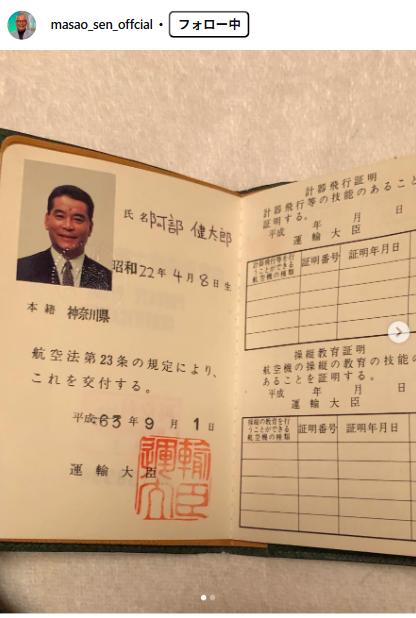 masao_sen_offcial • フォロー中
氏名 阿部 健太郎
昭和22年4月8日生
本籍 神奈川県
航空法第23条の規定により、
これを交付する。
平成63年9月1日
運輸大臣
計器飛行証明
計器飛行等の技能のあること
証明する。
平成 年 月 日
運輸大臣
計器飛行等を行
うことができる
航空機の種類
証明番号
証明年月日
操縦教育証明
航空機の操縦の教育の技能の
あることを証明する。
平成 年 月 日
運輸大臣
操縦の教育を行
うことができる
航空機の種類
証明番号
証明年月日